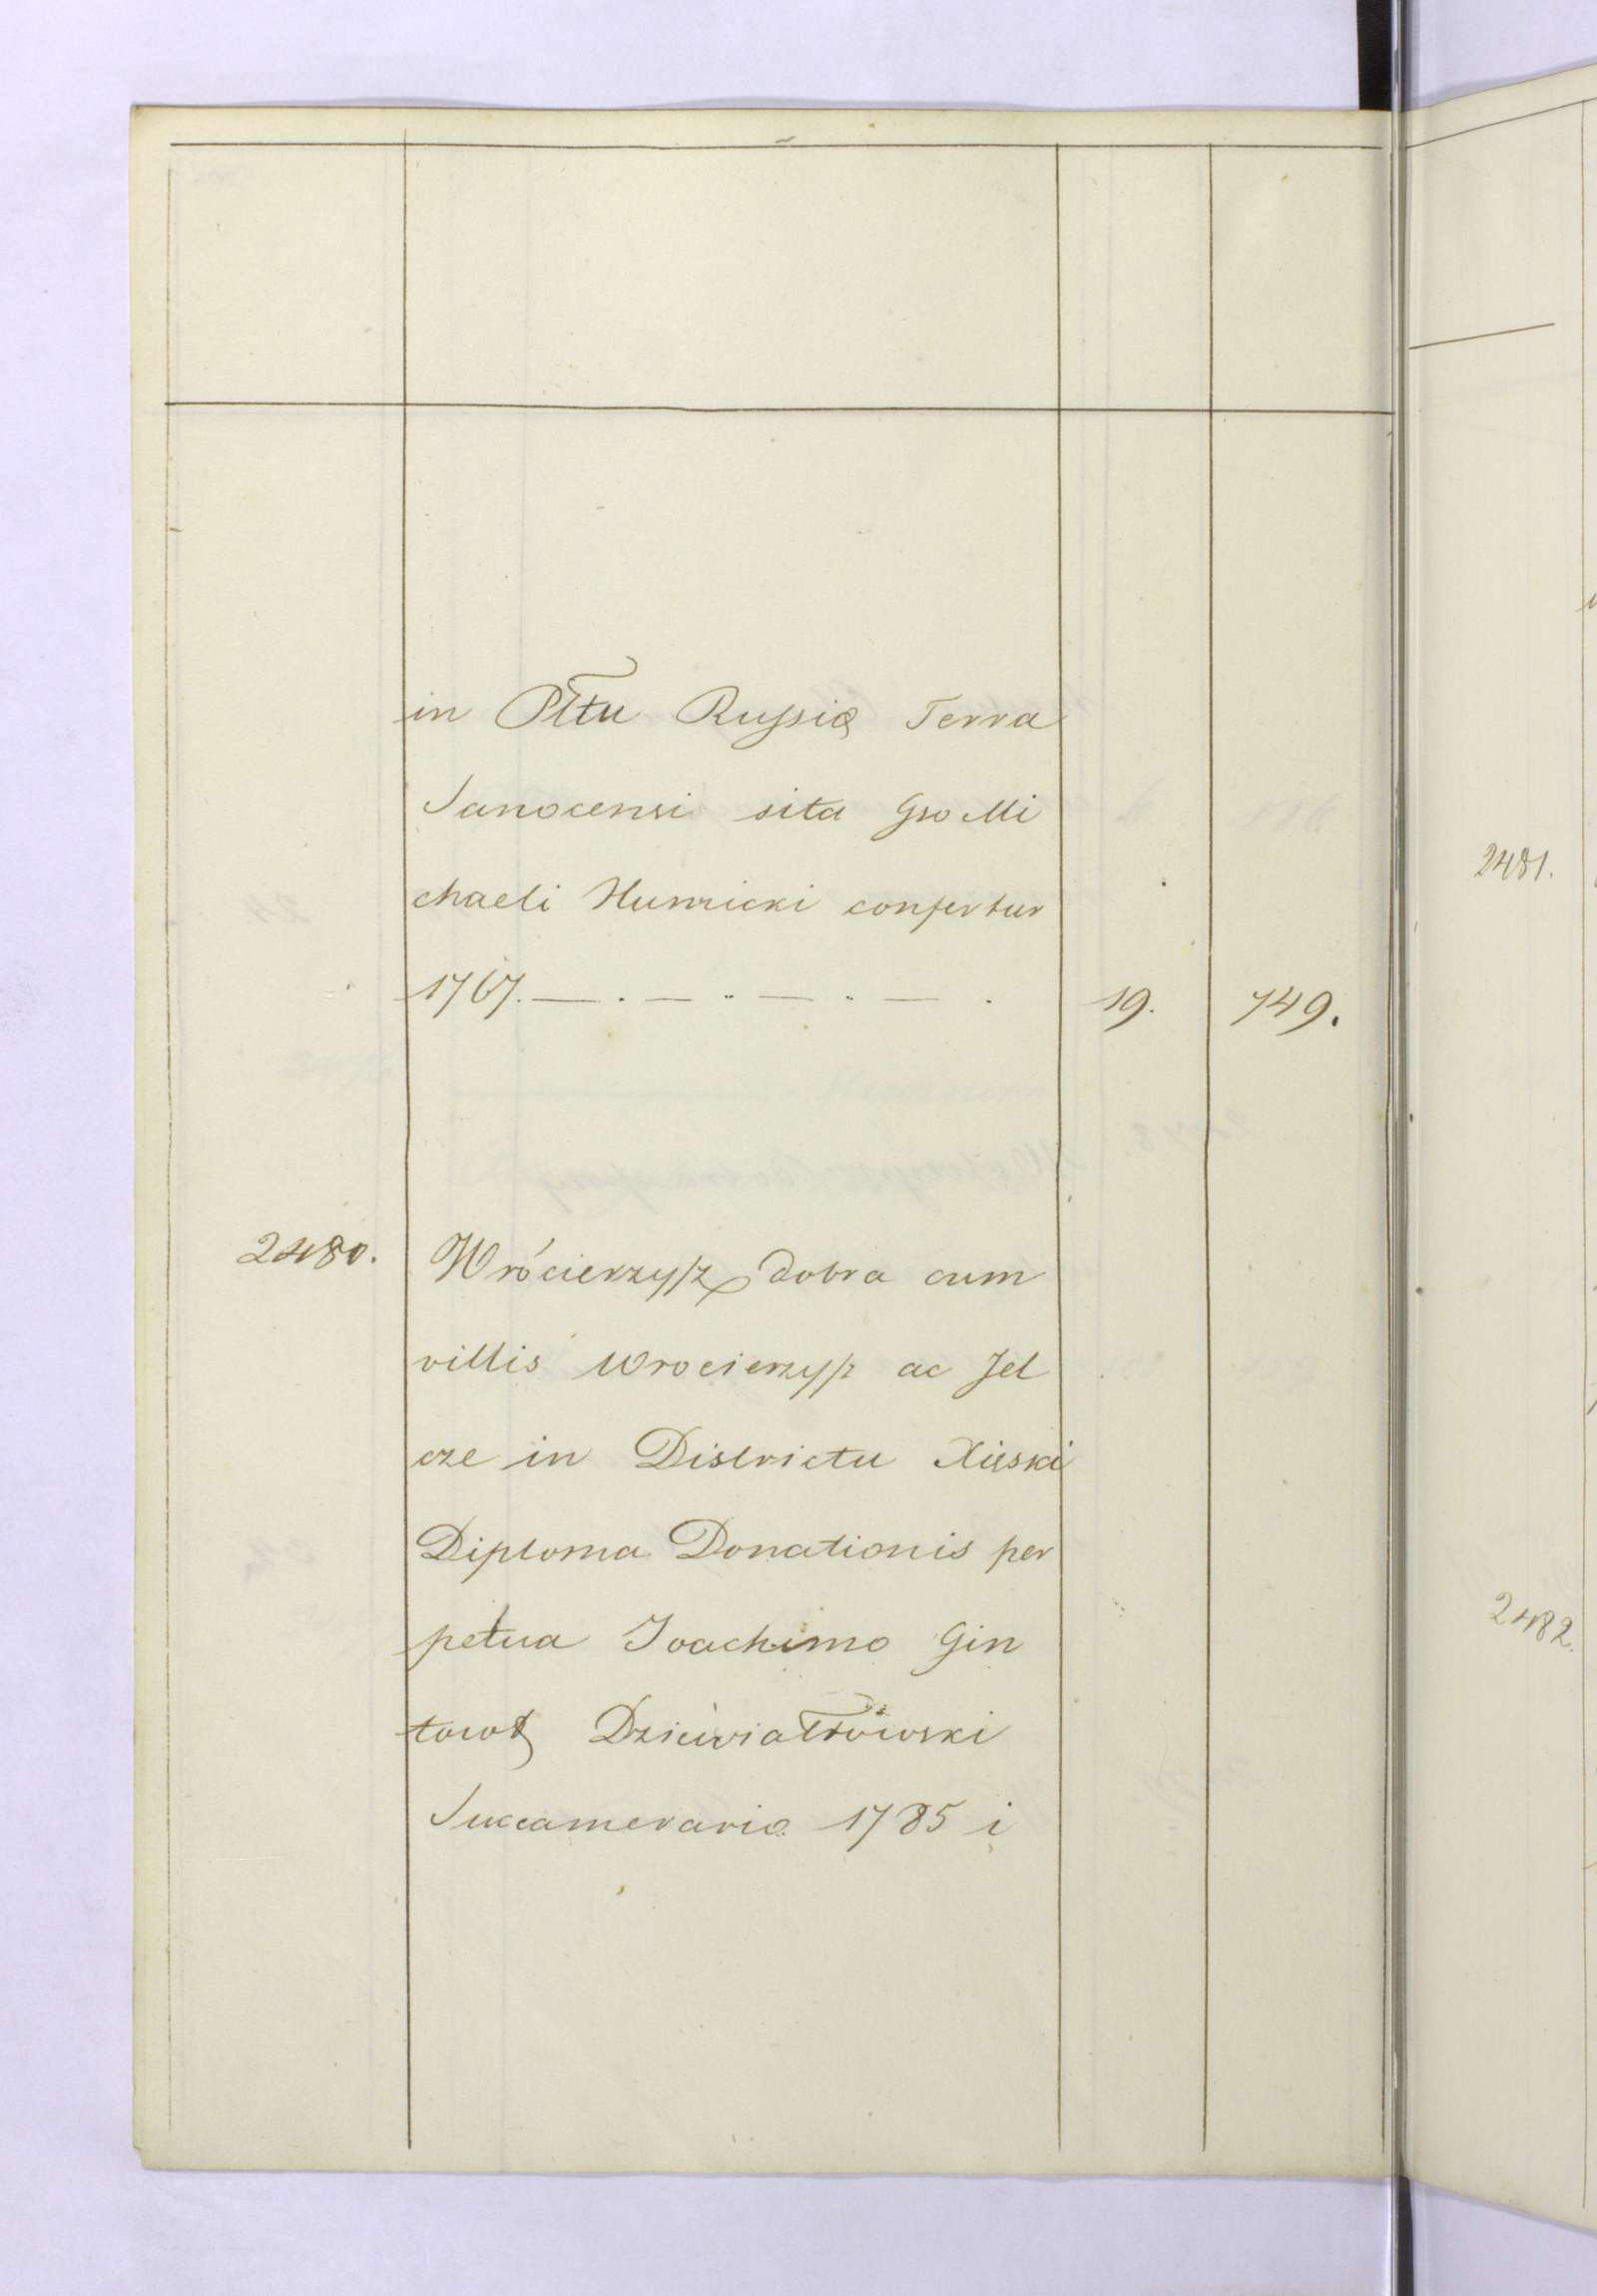 in Płtu Russię Terra
Sanocensi sita Gso Mi
chaeli Humnicki confertur
1767. — . — .. — . — . 19. 749.
2480. Wrócierzysz dobra cum
villis Wrocierzysz ac Jel
cze in Districtu Xiąski
Diploma Donationis per
petua Joachimo Gin
towt Dziewiałtowski
Succamerario 1785 i
2481.
2482.